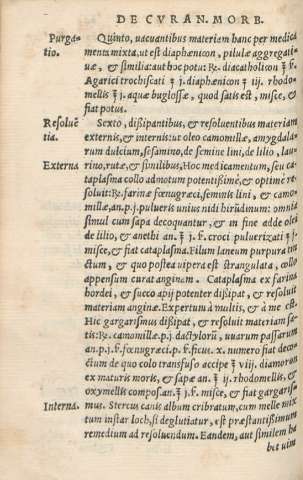 DE CVRAN. MORB.
Purgatio.
Quinto, vacuantibus materiam hanc per medica
menta mixta, ut est diaphœnicon, pilulæ aggregati-
uæ, & similia: aut hoc potu: ℞. diacatholicū ℥ ſ.
Agarici trochiscati ʒ j. diaphœnicon ʒ iij. rhodo-
mellis ℥ j. aquæ buglossæ, quod satis est, misce, &
fiat potus.
Resoluẽtia.
Sexto, dißipantibus, & resoluentibus materiam
externis, & internis: ut oleo camomillæ, amygdala-
rum dulcium, sesamino, de semine lini, de lilio, lau-
Externa
rino, rutæ, & similibus. Hoc medicamentum, seu ca-
taplasma collo admotum potentißimè, & optimè re-
soluit: ℞. farinæ fœnugræci, seminis lini, & camo-
millæ, an. p. j. pulueris unius nidi hirũdinum: omnia
simul cum sapa decoquantur, & in fine adde olei
de lilio, & anethi an. ℥ j. ſ. croci puluerizati
misce, & fiat cataplasma. Filum laneum purpura tin
ctum, & quo postea uipera est strangulata, collo
appensum curat anginam. Cataplasma ex farina
hordei, & succo apij potenter dißipat, & resoluit
materiam anginæ. Expertum à multis, & à me est.
Hic gargarismus dißipat, & resoluit materiam sa-
tis: ℞. camomillæ p. j. dactylorū, uuarum passarum
an. p. j. ſ. fœnugræci p. ſ. ficus. x. numero fiat deco
ctum de quo colato transfuso accipe ℥ viij. diamoron
ex maturis moris, & sapæ an. ℥ ij. rhodomellis, &
oxymellis compos. an. ℥ j. ſ. misce, & fiat gargaris-
Interna.
mus. Stercus canis album cribratum, cum melle mix
tum instar loch, si deglutiatur, est præstantißimum
remedium ad resoluendum. Eandem, aut similem ha
bet uim